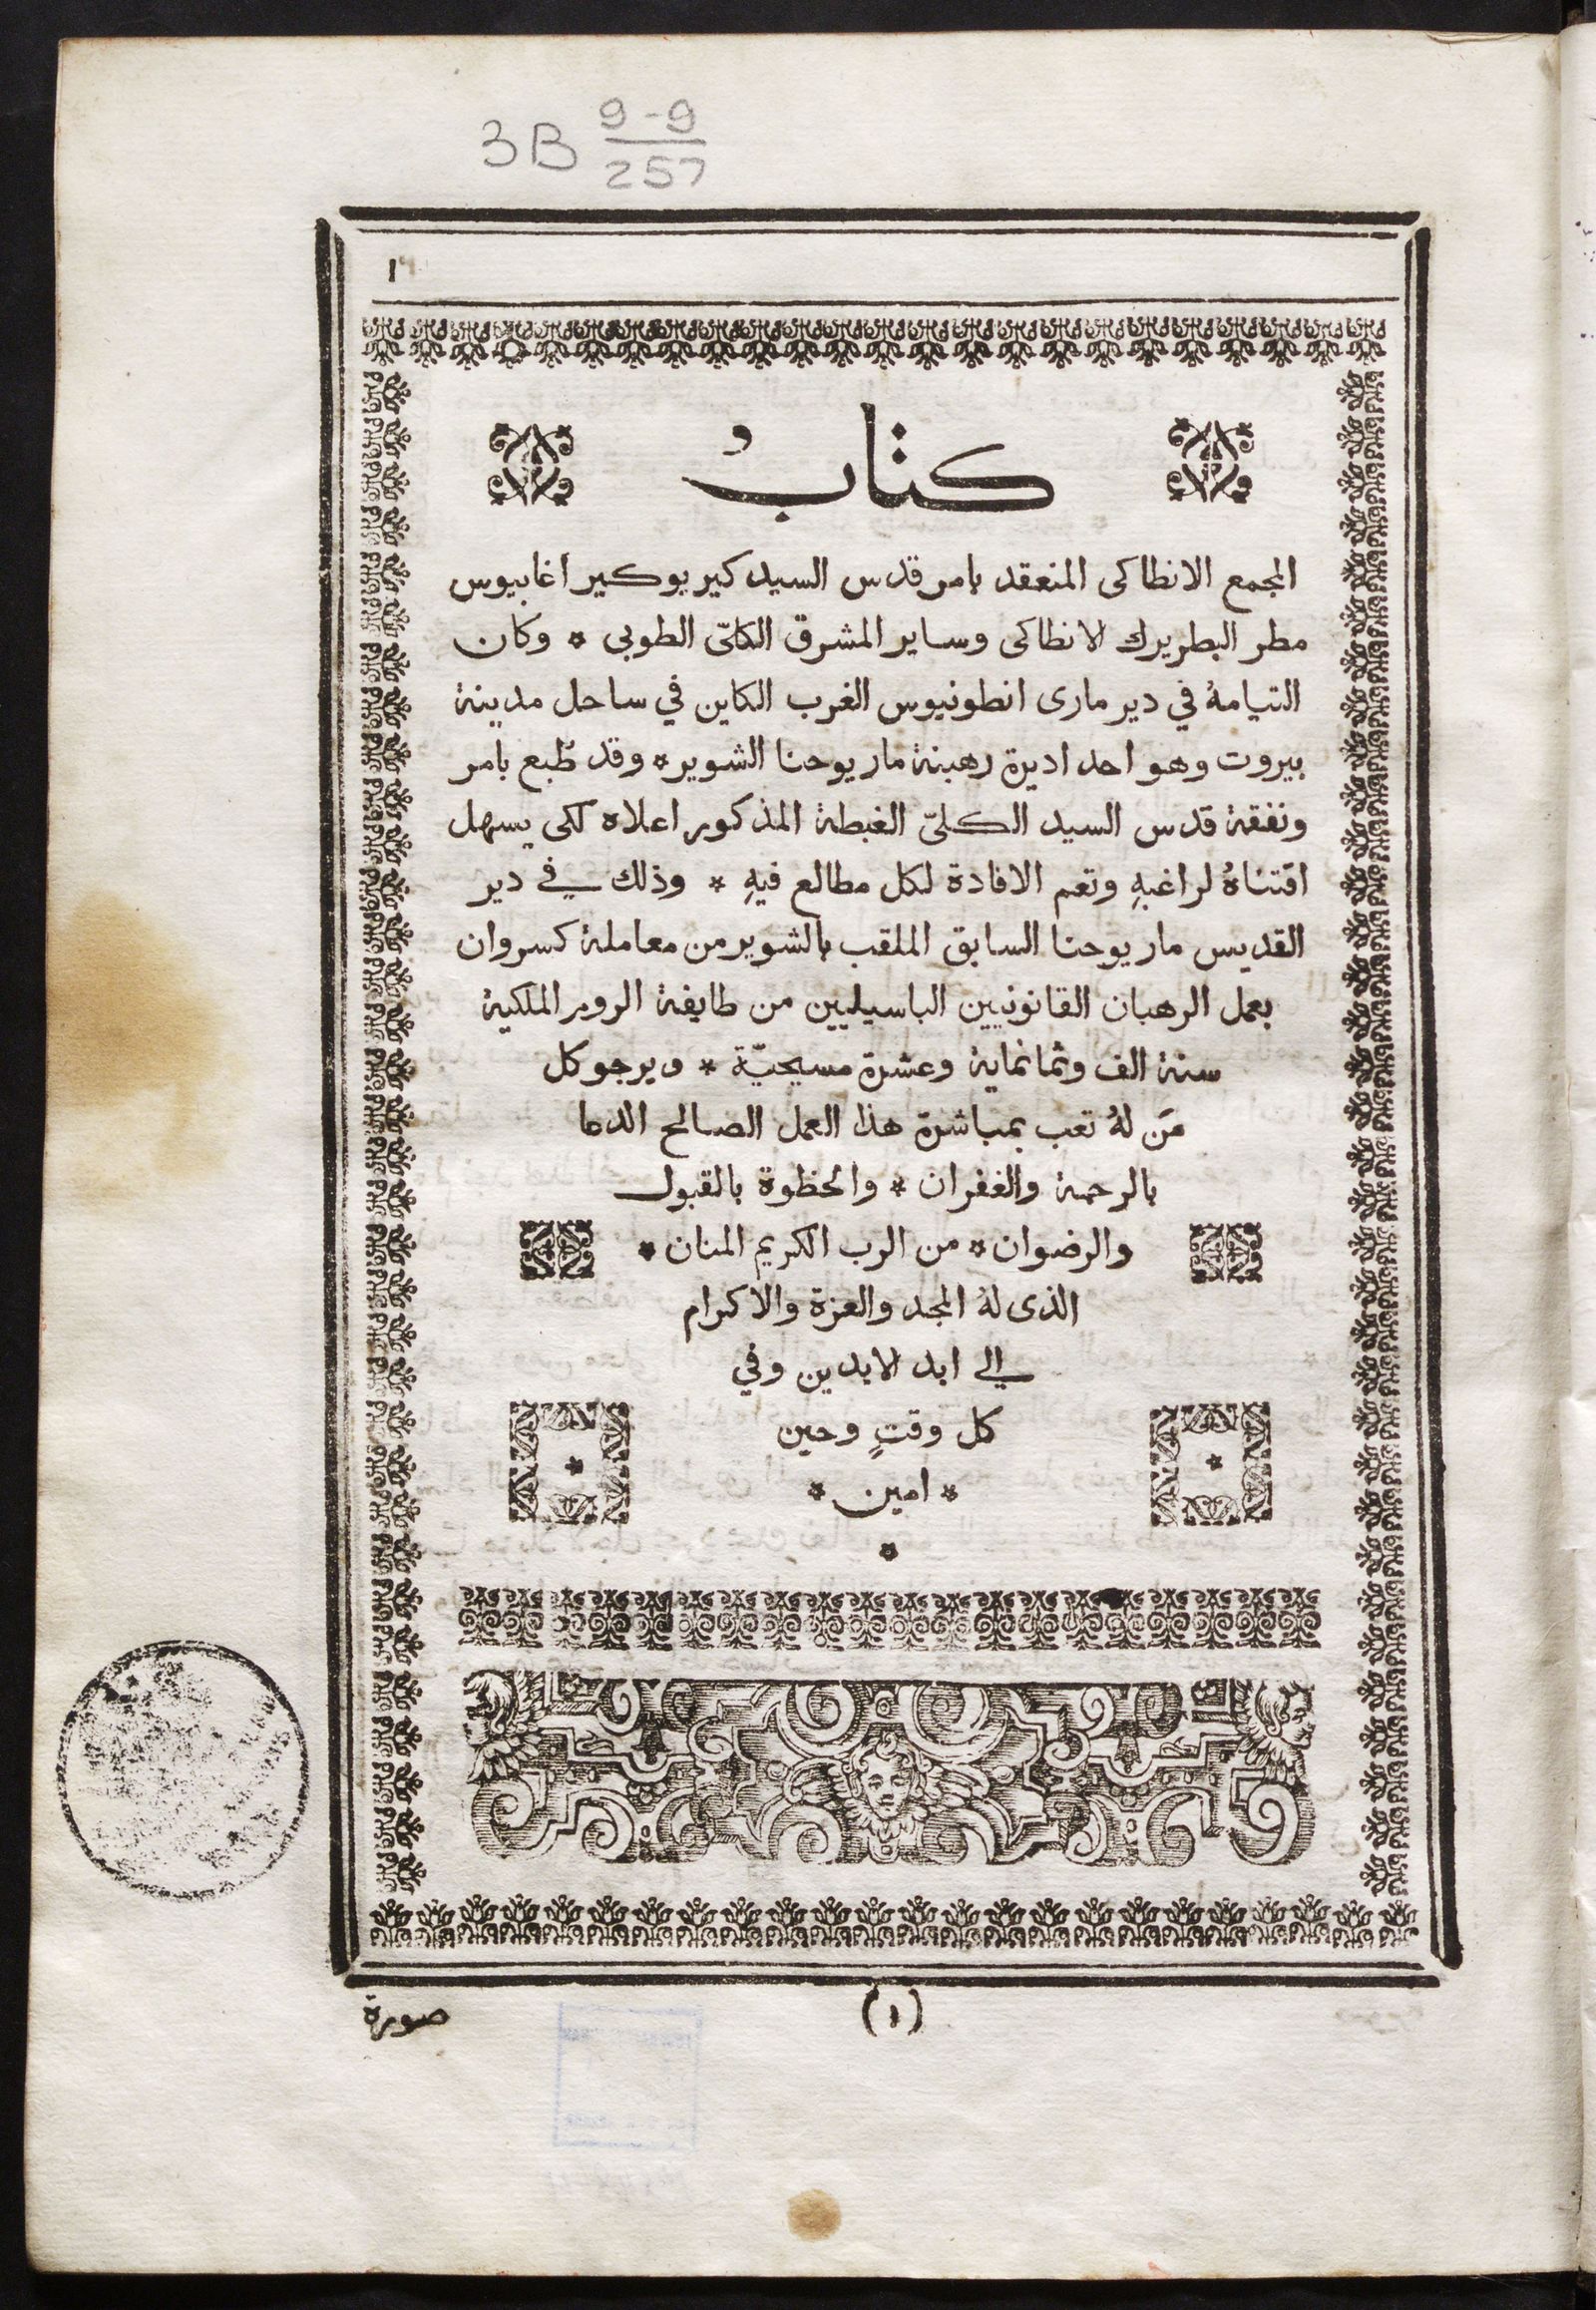 3B 9-9
257
١
كتابُ
المجمع الانطاكى المنعقد بامر قدس السيد كير يوكير اغابيوس
مطر البطريرك الانطاكى وساير المشرق الكلىّ الطوبى * وكان
التيامهُ في دير مارى انطونيوس الغرب الكاين في ساحل مدينة
بيروت وهو احد اديرة رهبنة مار يوحنا الشوير * وقد طُبع بامر
ونفقة قدس السيد الكلىّ الغبطة المذكور اعلاه لكى يسهل
اقتناهُ لراغبهِ وتعم الافادة لكل مطالع فيهِ * وذلك في دير
القديس مار يوحنا السابق الملقب بالشوير من معاملة كسروان
بعمل الرهبان القانونيين الباسيليين من طايفة الروم الملكية
سنة الف وثمانماية وعشرة مسيحيّة * ويرجو كل
مَن لهُ تعب بمباشرة هذا العمل الصالح الدعا
بالرحمة والغفران * والحظوة بالقبول
والرضوان * من الرب الكريم المنان *
الذى لهُ المجد والعزة والاكرام
الي ابد الابدين وفي
كل وقتٍ وحين
* امين *
*
(١)
صورة